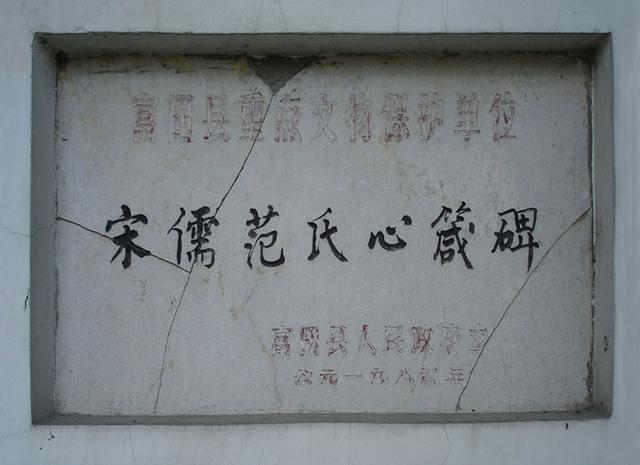 富阳县重点文物保护单位
宋儒范氏心箴碑
富阳县人民政府立
公元一九八四年